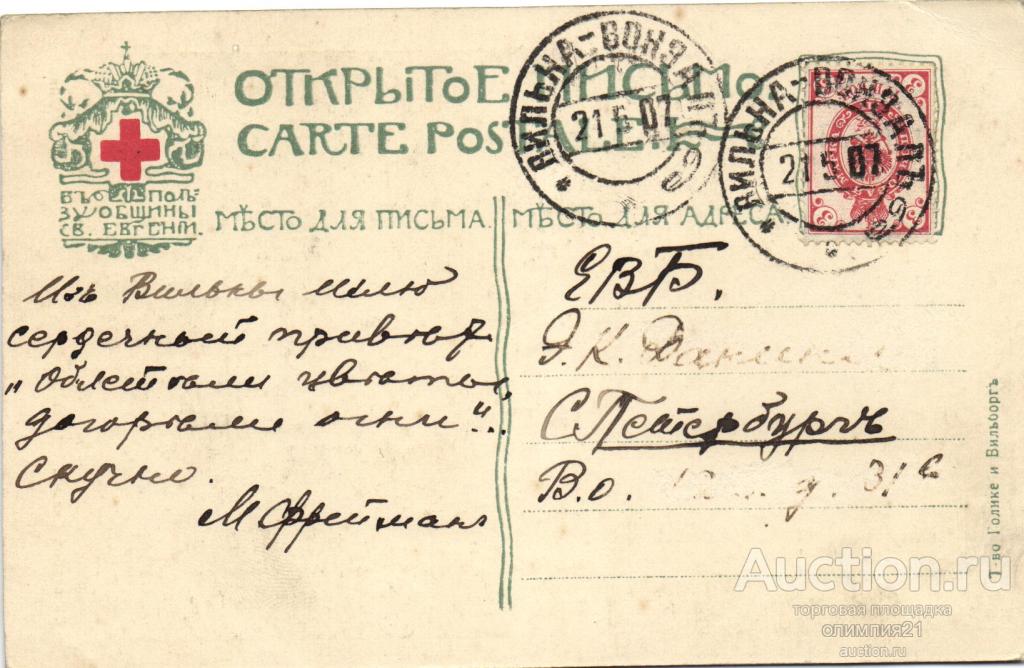 ОТКРЫТОЕ ПИСЬМО
CARTE POSTALE
ВЪ ПОЛЬ-
ЗУ ОБЩИНЫ
СВ. ЕВГЕНІИ.
МѢСТО ДЛЯ ПИСЬМА.
МѢСТО ДЛЯ АДРЕСА
ВИЛЬНА-ВОКЗАЛЪ
21 5 07
ВИЛЬНА-ВОКЗАЛЪ
21 5 07
Изъ Вильны шлю
сердечный привѣт
„Облетѣли цвѣты,
догорѣли огни“..
Скучно.
М Фрейманъ
ЕВР.
Я. К.
С. Петербургъ
В. о. д. 31
Т-во Голике и Вильборгъ
Auction.ru
торговая площадка
олимпия21
auction.ru